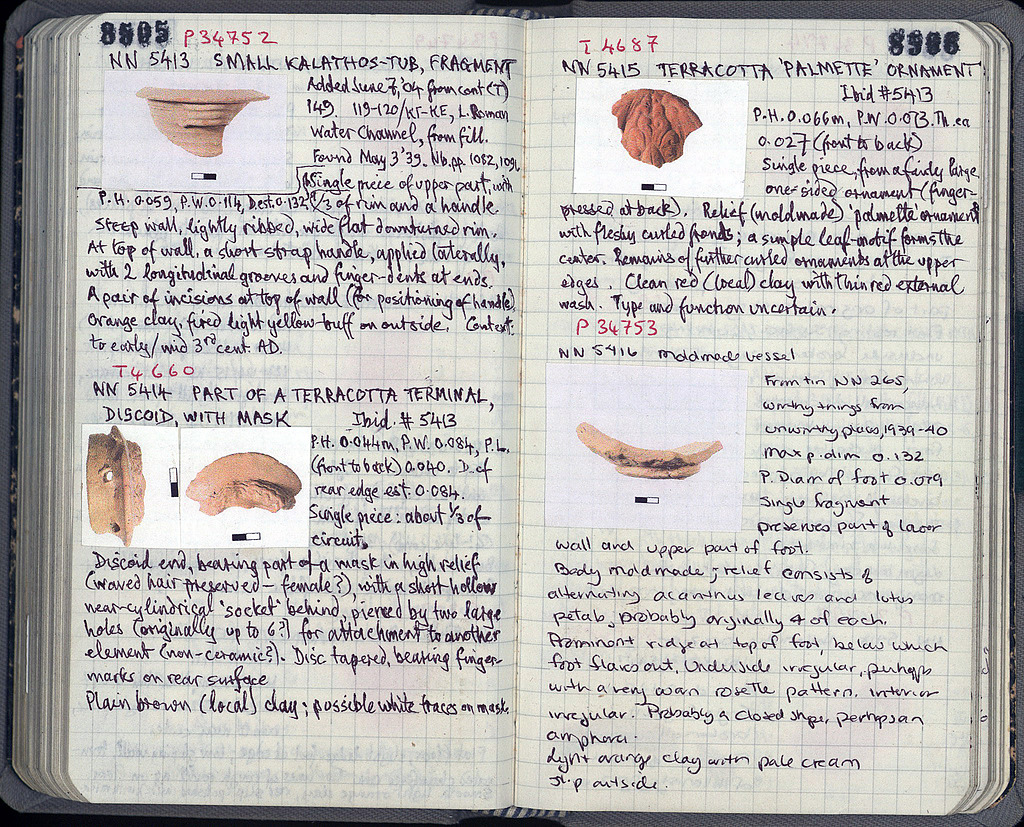 8505 P 34752
NN 5413 SMALL KALATHOS-TUB, FRAGMENT
Added June 7, '04 from cont (T)
149. 119-120/KΓ-KE, L. Roman
Water Channel, from fill.
Found May 3 '39. Nb. pp. 1082, 1091
Single piece of upper part, with
P.H. 0.059, P.W. 0.114, D.est. 0.132. 1/3 of rim and a handle
Steep wall, lightly ribbed, wide flat downturned rim.
At top of wall, a short strap handle, applied laterally,
with 2 longitudinal grooves and finger-dents at ends.
A pair of incisions at top of wall (for positioning of handle).
Orange clay, fired light yellow-buff on outside. Context:
to early/mid 3rd cent. AD.
T 4660
NN 5414 PART OF A TERRACOTTA TERMINAL,
DISCOID, WITH MASK Ibid. # 5413
P.H. 0.044m, P.W. 0.084, P.L.
(front to back) 0.040. D. of
rear edge est. 0.084.
Single piece: about 1/3 of
circuit.
Discoid end, bearing part of a mask in high relief
(waved hair preserved – female?) with a short hollow
near-cylindrical 'socket' behind, pierced by two large
holes (originally up to 6?) for attachment to another
element (non-ceramic?). Disc tapered, bearing finger-
marks on rear surface
Plain brown (local) clay; possible white traces on mask.
T 4687 8506
NN 5415 TERRACOTTA 'PALMETTE' ORNAMENT
Ibid #5413
P.H. 0.066m, P.W. 0.073. Th. ca
0.027 (front to back)
Single piece, from a fairly large
one-sided ornament (finger-
pressed at back). Relief (moldmade) palmette ornament
with fleshy curled fronds; a simple leaf-motif forms the
center. Remains of further curled ornaments at the upper
edges. Clean red (local) clay with thin red external
wash. Type and function uncertain.
P 34753
NN 5416 moldmade vessel
From tin NN 265,
worthy things from
unworthy places, 1939-40
max p. dim 0.132
P. Diam of foot 0.079
Single fragment
preserves part of lower
wall and upper part of foot.
Body moldmade; relief consists of
alternating acanthus leaves and lotus
petals, probably originally 4 of each.
Prominent ridge at top of foot, below which
foot flares out. Underside irregular, perhaps
with a very worn rosette pattern. Interior
irregular. Probably a closed shape, perhaps an
amphora.
Light orange clay with pale cream
slip outside.